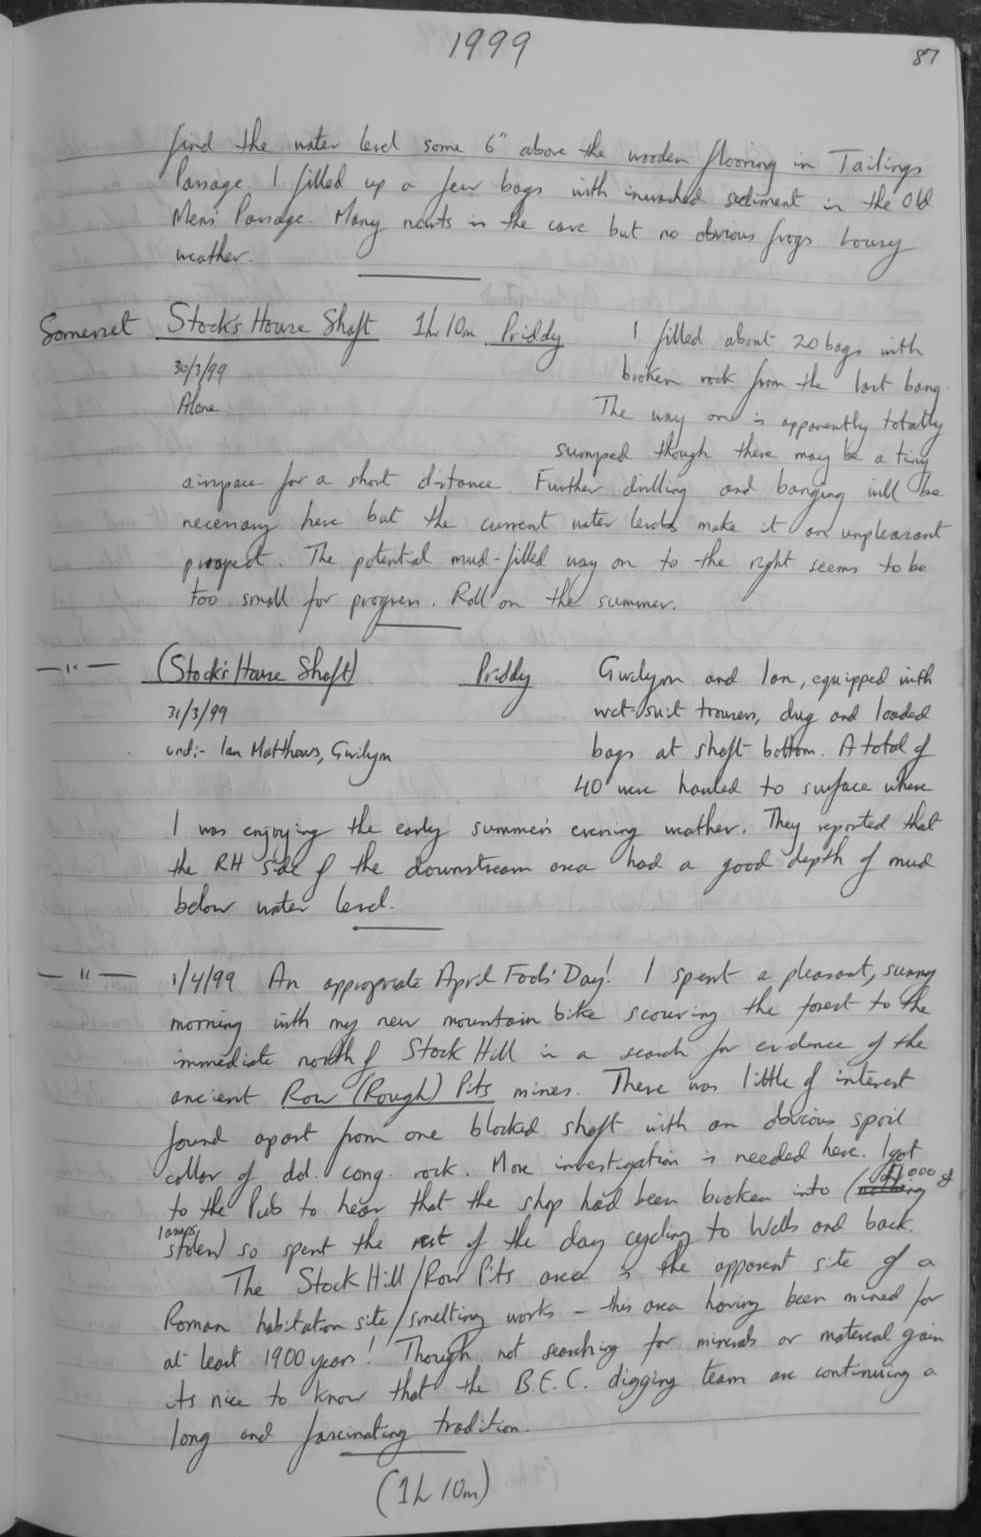 1999
87
find the water level some 6" above the wooden flooring in Tailings
Passage. I filled up a few bags with inwashed sediment in the Old
Mens' Passage. Many newts in the cave but no obvious frogs. Lousy
weather.
Somerset Stock's House Shaft 1hr 10m Priddy I filled about 20 bags with
30/3/99 broken rock from the last bang.
Alone The way on is apparently totally
sumped though there may be a tiny
airspace for a short distance. Further drilling and banging will be
necessary here but the current water levels make it an unpleasant
prospect. The potential mud-filled way on to the right seems to be
too small for progress. Roll on the summer.
—"— (Stock's House Shaft) Priddy Gwilym and Ian, equipped with
31/3/99 wet-suit trousers, dug and loaded
with:- Ian Matthews, Gwilym bags at shaft bottom. A total of
40 were hauled to surface where
I was enjoying the early summer's evening weather. They reported that
the RH side of the downstream area had a good depth of mud
below water level.
—"— 1/4/99 An appropriate April Fools' Day! I spent a pleasant, sunny
morning with my new mountain bike scouring the forest to the
immediate north of Stock Hill in a search for evidence of the
ancient Row (Rough) Pits mines. There was little of interest
found apart from one blocked shaft with an obvious spoil
collar of dol. cong. rock. More investigation is needed here. I got
to the Pub to hear that the shop had been broken into (
lamps stolen) so spent the rest of the day cycling to Wells and back.
The Stock Hill/Row Pits area is the apparent site of a
Roman habitation site/smelting works - this area having been mined for
at least 1900 years! Though not searching for minerals or material gain
its nice to know that the B.E.C. digging team are continuing a
long and fascinating tradition.
(1h 10m)